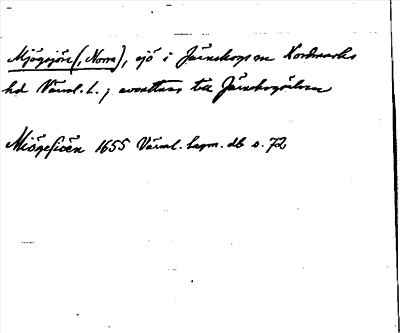 Mjögsjön (, Norra), sjö i Järnskogs sn Nordmarks
hd Värml. l.; avvattnas till Järnskogsälven
Miögesiöen 1655 Värml. lagm. db s. 72